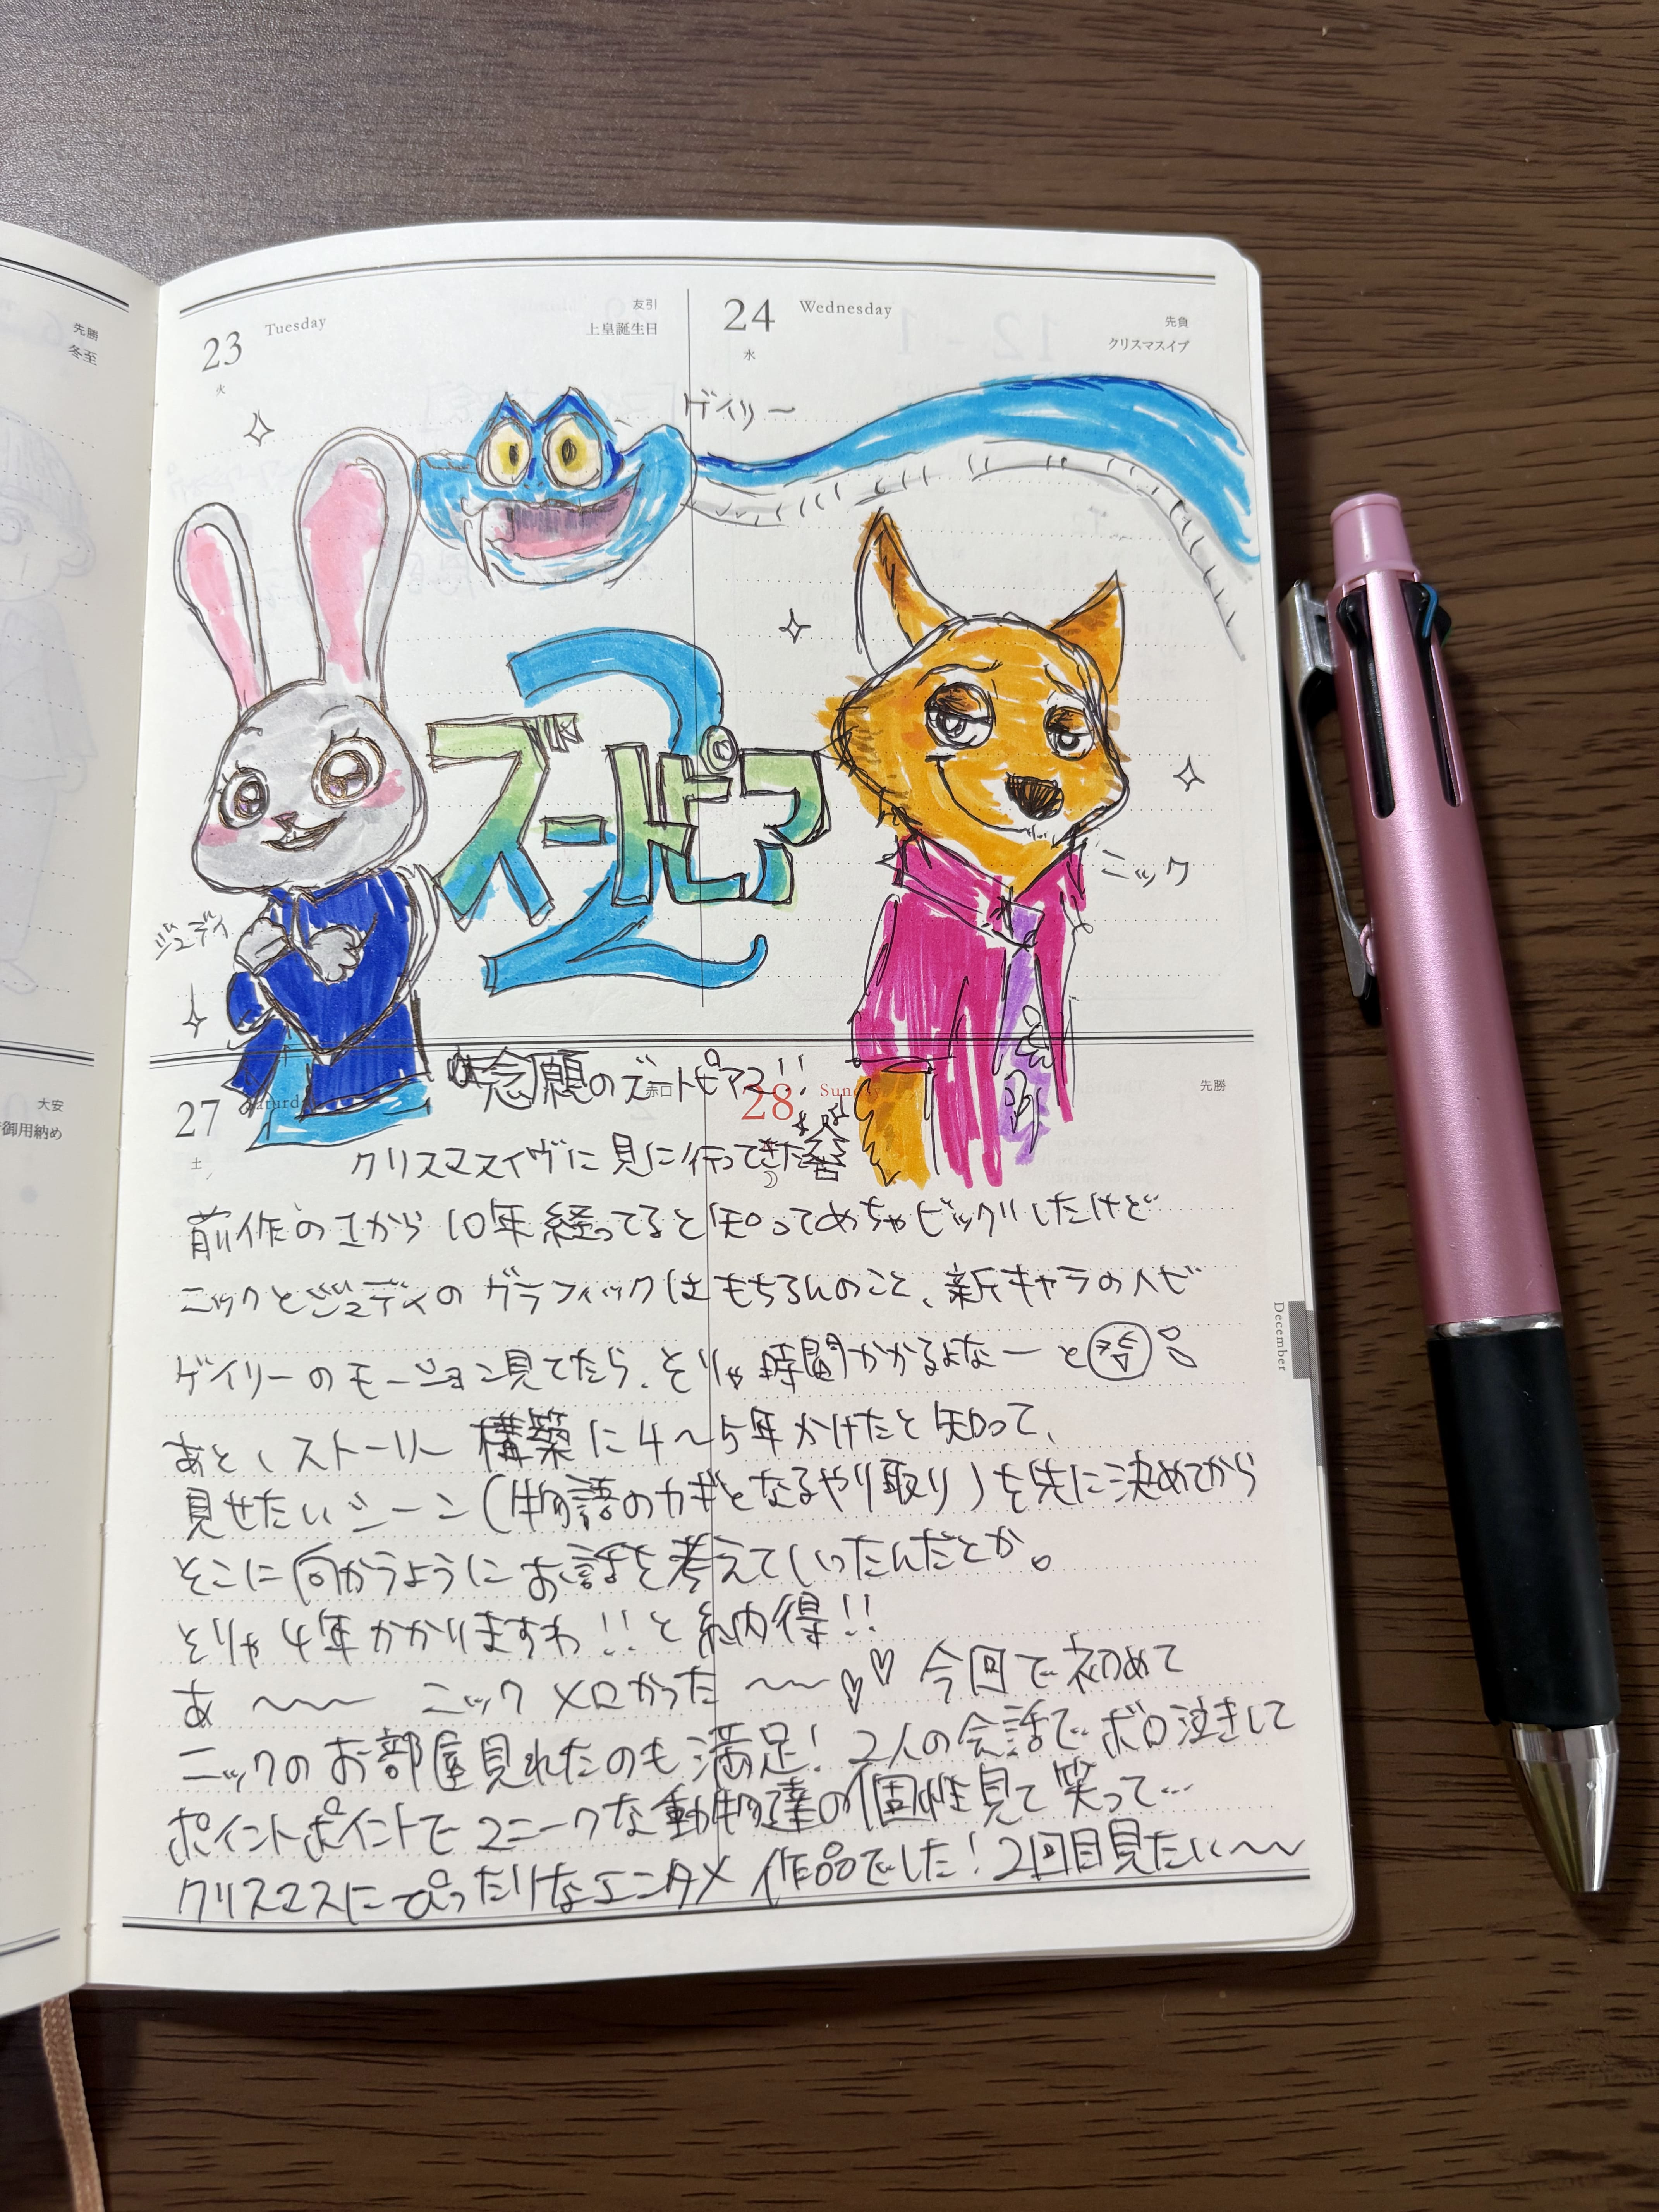 先勝
冬至
大安
御用納め
23 Tuesday 友引
火 上皇誕生日
24 Wednesday 先負
水 クリスマスイブ
ゲイリー
ズートピア
2
ジュディ
ニック
27 Saturday 赤口
土
28 Sunday 先勝
念願のズートピア2!!
クリスマスイヴに見に行ってきた
前作の1から10年経ってると知ってめちゃビックリしたけど
ニックとジュディのグラフィックはもちろんのこと、新キャラのヘビ
ゲイリーのモーション見てたら、そりゃ時間かかるよなーと
あと、ストーリー構築に4〜5年かけたと知って、
見せたいシーン(物語のカギとなるやり取り)を先に決めてから
そこに向かうようにお話を考えていったんだとか。
そりゃ4年かかりますわ!!と納得!!
あ〜〜〜 ニックメロかった〜〜♡♡ 今回で初めて
ニックのお部屋見れたのも満足! 2人の会話でボロ泣きして
ポイントポイントでユニークな動物達の個性見て笑って…
クリスマスにぴったりなエンタメ作品でした! 2回目見たい〜〜
December